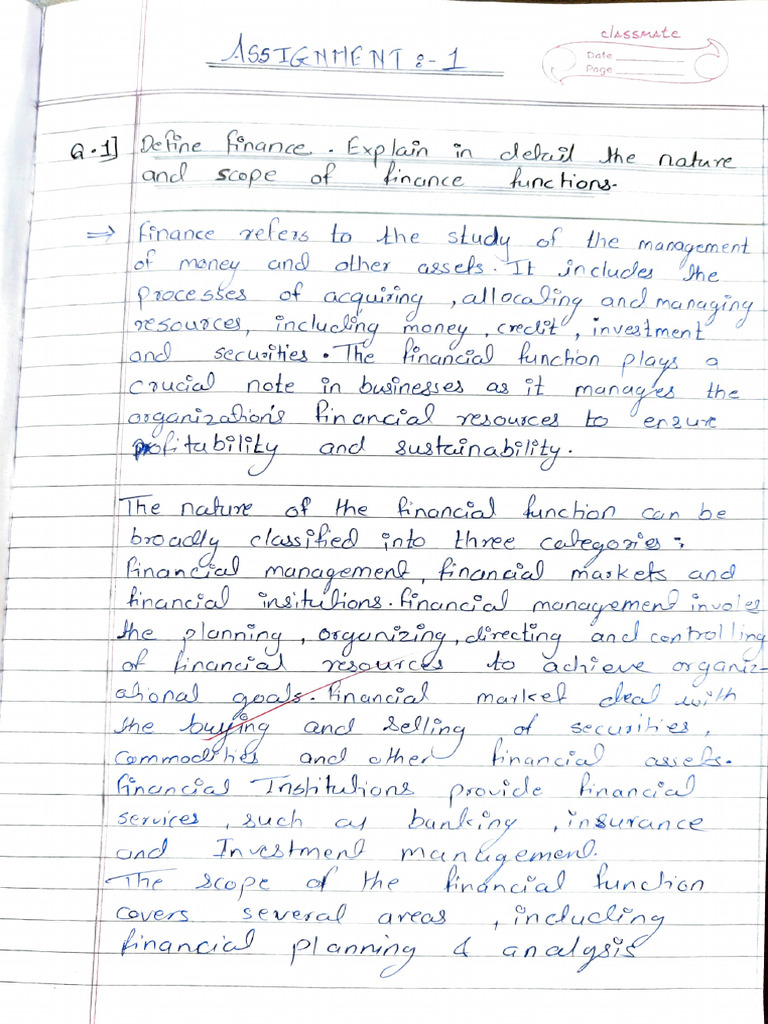 classmate
Date
Page
ASSIGNMENT :- 1
Q.1] Define finance. Explain in detail the nature
and scope of finance functions.
⇒ Finance refers to the study of the management
of money and other assets. It includes the
processes of acquiring, allocating and managing
resources, including money, credit, investment
and securities. The financial function plays a
crucial note in businesses as it manages the
organization's financial resources to ensure
profitability and sustainability.
The nature of the financial function can be
broadly classified into three categories:
financial management, financial markets and
financial insitutions. Financial management involes
the planning, organizing, directing and controlling
of financial resources to achieve organiz-
ational goals. Financial market deal with
the buying and selling of securities,
commodities and other financial assets.
Financial Institutions provide financial
services, such as banking, insurance
and Investment management.
The scope of the financial function
covers several areas, including
financial planning & analysis